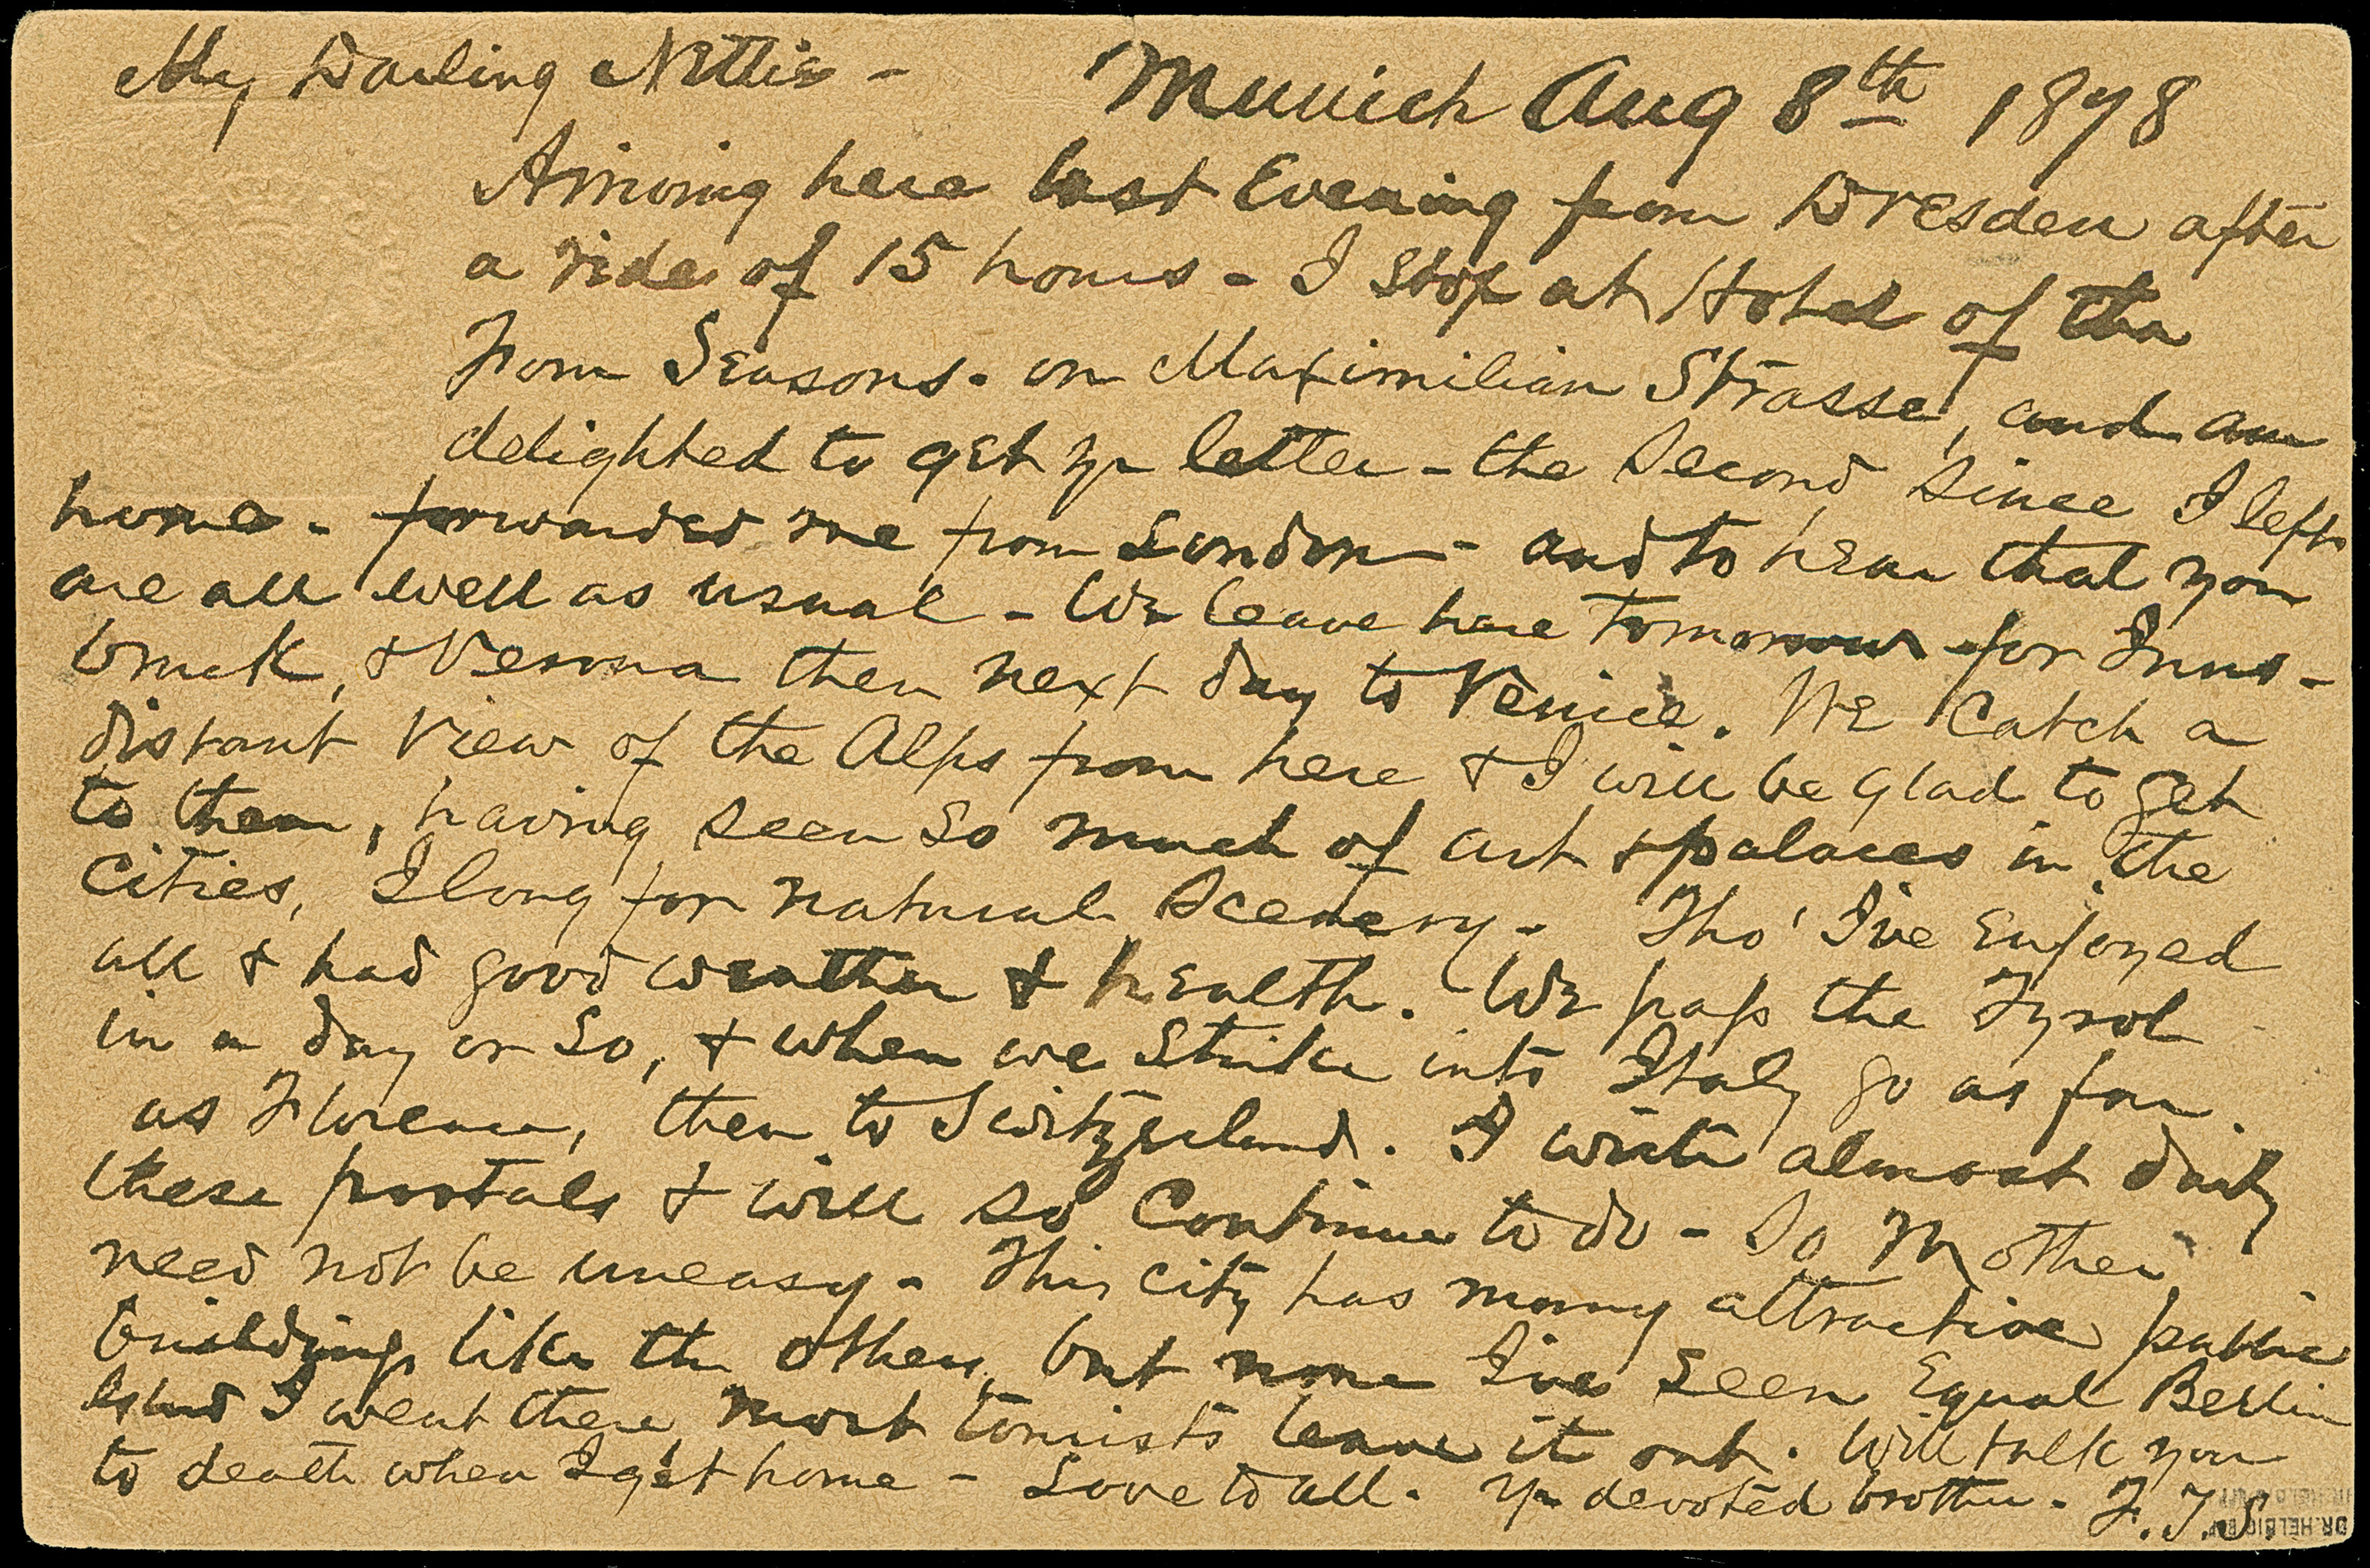 My Darling Nettie - Munich Aug 8th 1878
Arriving here last Evening from Dresden after
a ride of 15 hours - I stop at Hotel of the
Four Seasons. on Maximilian Strasse, and am
delighted to get yr letter - the second since I left
home - forwarded me from London - and to hear that you
are all well as usual - We leave here tomorrow for Inns-
bruck, & Verona then next day to Venice. We catch a
distant view of the Alps from here & I will be glad to get
to them, having seen so much of art & palaces in the
Cities, I long for natural scenery - Tho' I've Enjoyed
all & had good weather & health. We pass the Tyrol
in a day or so, & when we strike into Italy go as far
as Florence, then to Switzerland. I write almost daily
these postals & will so Continue to do - So Mother
need not be uneasy - This city has many attractive public
buildings like the others, but none I've seen Equal Berlin
glad I went there, most tourists leave it out. Will talk you
to death when I get home - Love to all. Yr devoted brother. F.T.S.
DR. HELBIG BPP